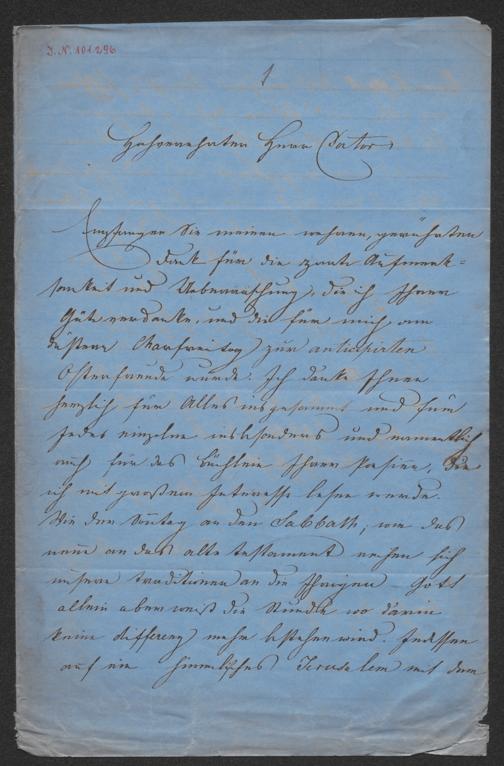 I. N. 101.296
1
Hochverehrter Herr
Empfangen Sie meinen wahren, gerührten
Dank für die zarte Aufmerk=
samkeit und Ueberraschung, die ich Ihrer
Güte verdanke, und die für mich am
Charfreitag zur anticipirten
Osterfreude wurde. Ich danke Ihnen
herzlich für Alles insgesammt und für
jedes einzelne insbesonders und namentlich
auch für das Büchlein Ihrer Poesien, die
ich mit großem Interesse lesen werde.
Wie der Sontag an den Sabbath, wie das
neue an das alte testament reihen sich
unsere traditionen an die Ihrigen Gott
allein aber weiß die Stunde wo darin
keine differenz mehr bestehen wird. Indessen
auf ein himmlisches Jerusalem mit dem